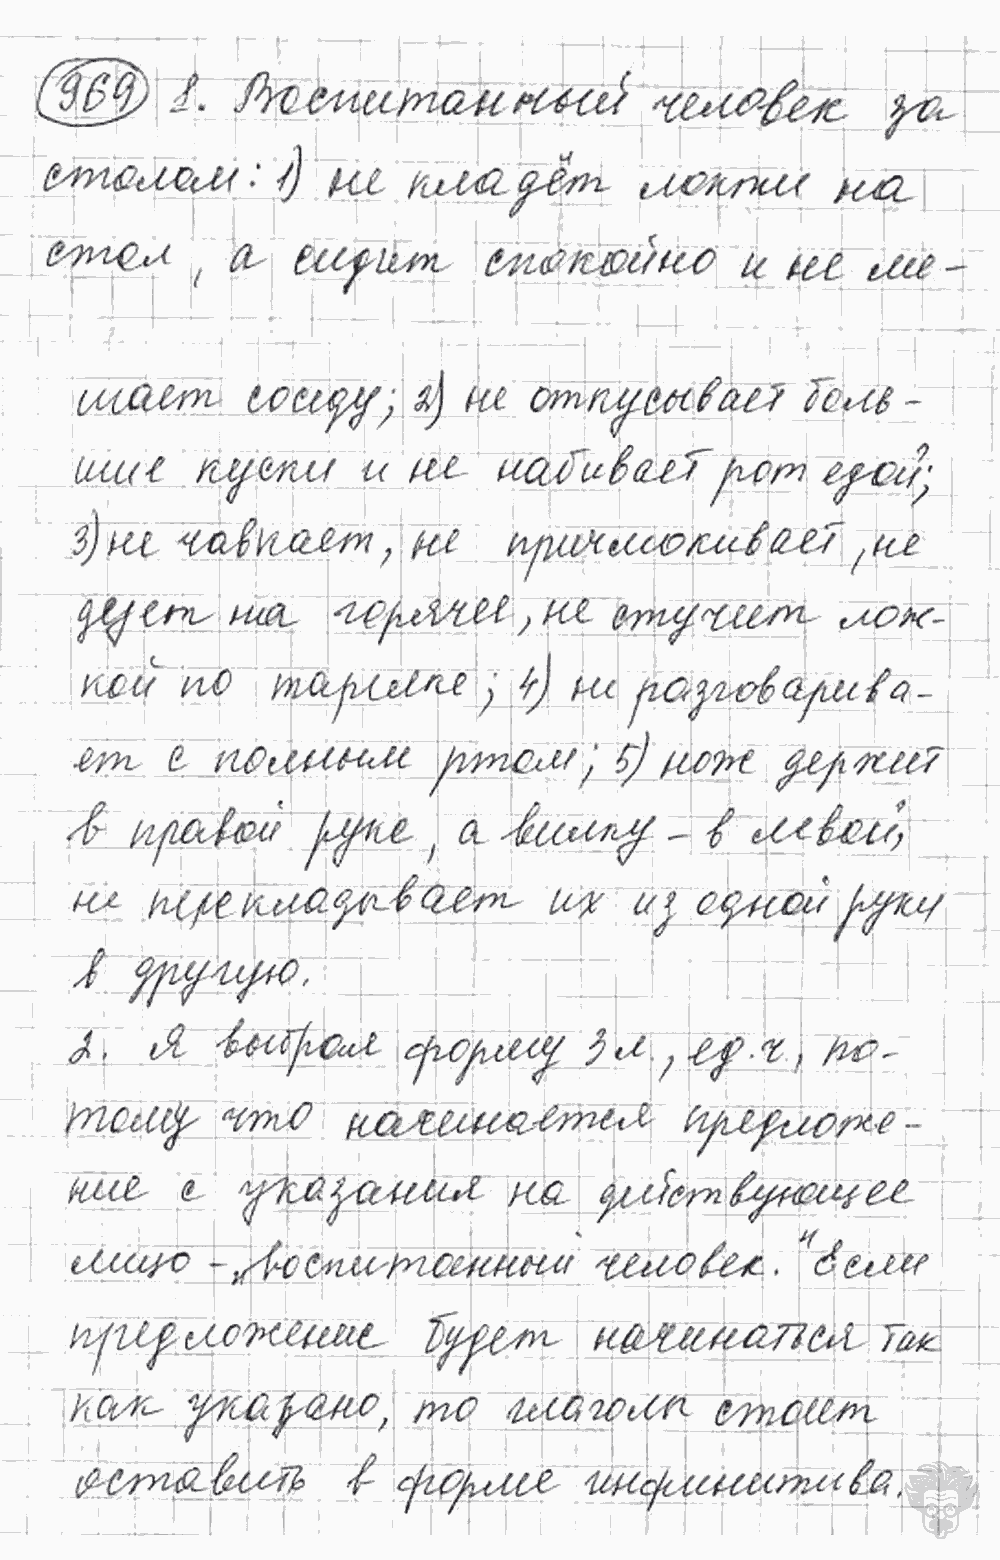 969 1. Воспитанный человек за
столом: 1) не кладёт локти на
стол, а сидит спокойно и не ме-
шает соседу; 2) не откусывает боль-
шие куски и не набивает рот едой;
3) не чавкает, не причмокивает, не
дует на горячее, не стучит лож-
кой по тарелке; 4) не разговарива-
ет с полным ртом; 5) нож держит
в правой руке, а вилку - в левой,
не перекладывает их из одной руки
в другую.
2. Я выбрал форму 3 л., ед.ч, по-
тому что начинается предложе-
ние с указания на действующее
лицо - „воспитанный человек." Если
предложение будет начинаться так
как указано, то глаголы стоит
оставить в форме инфинитива.